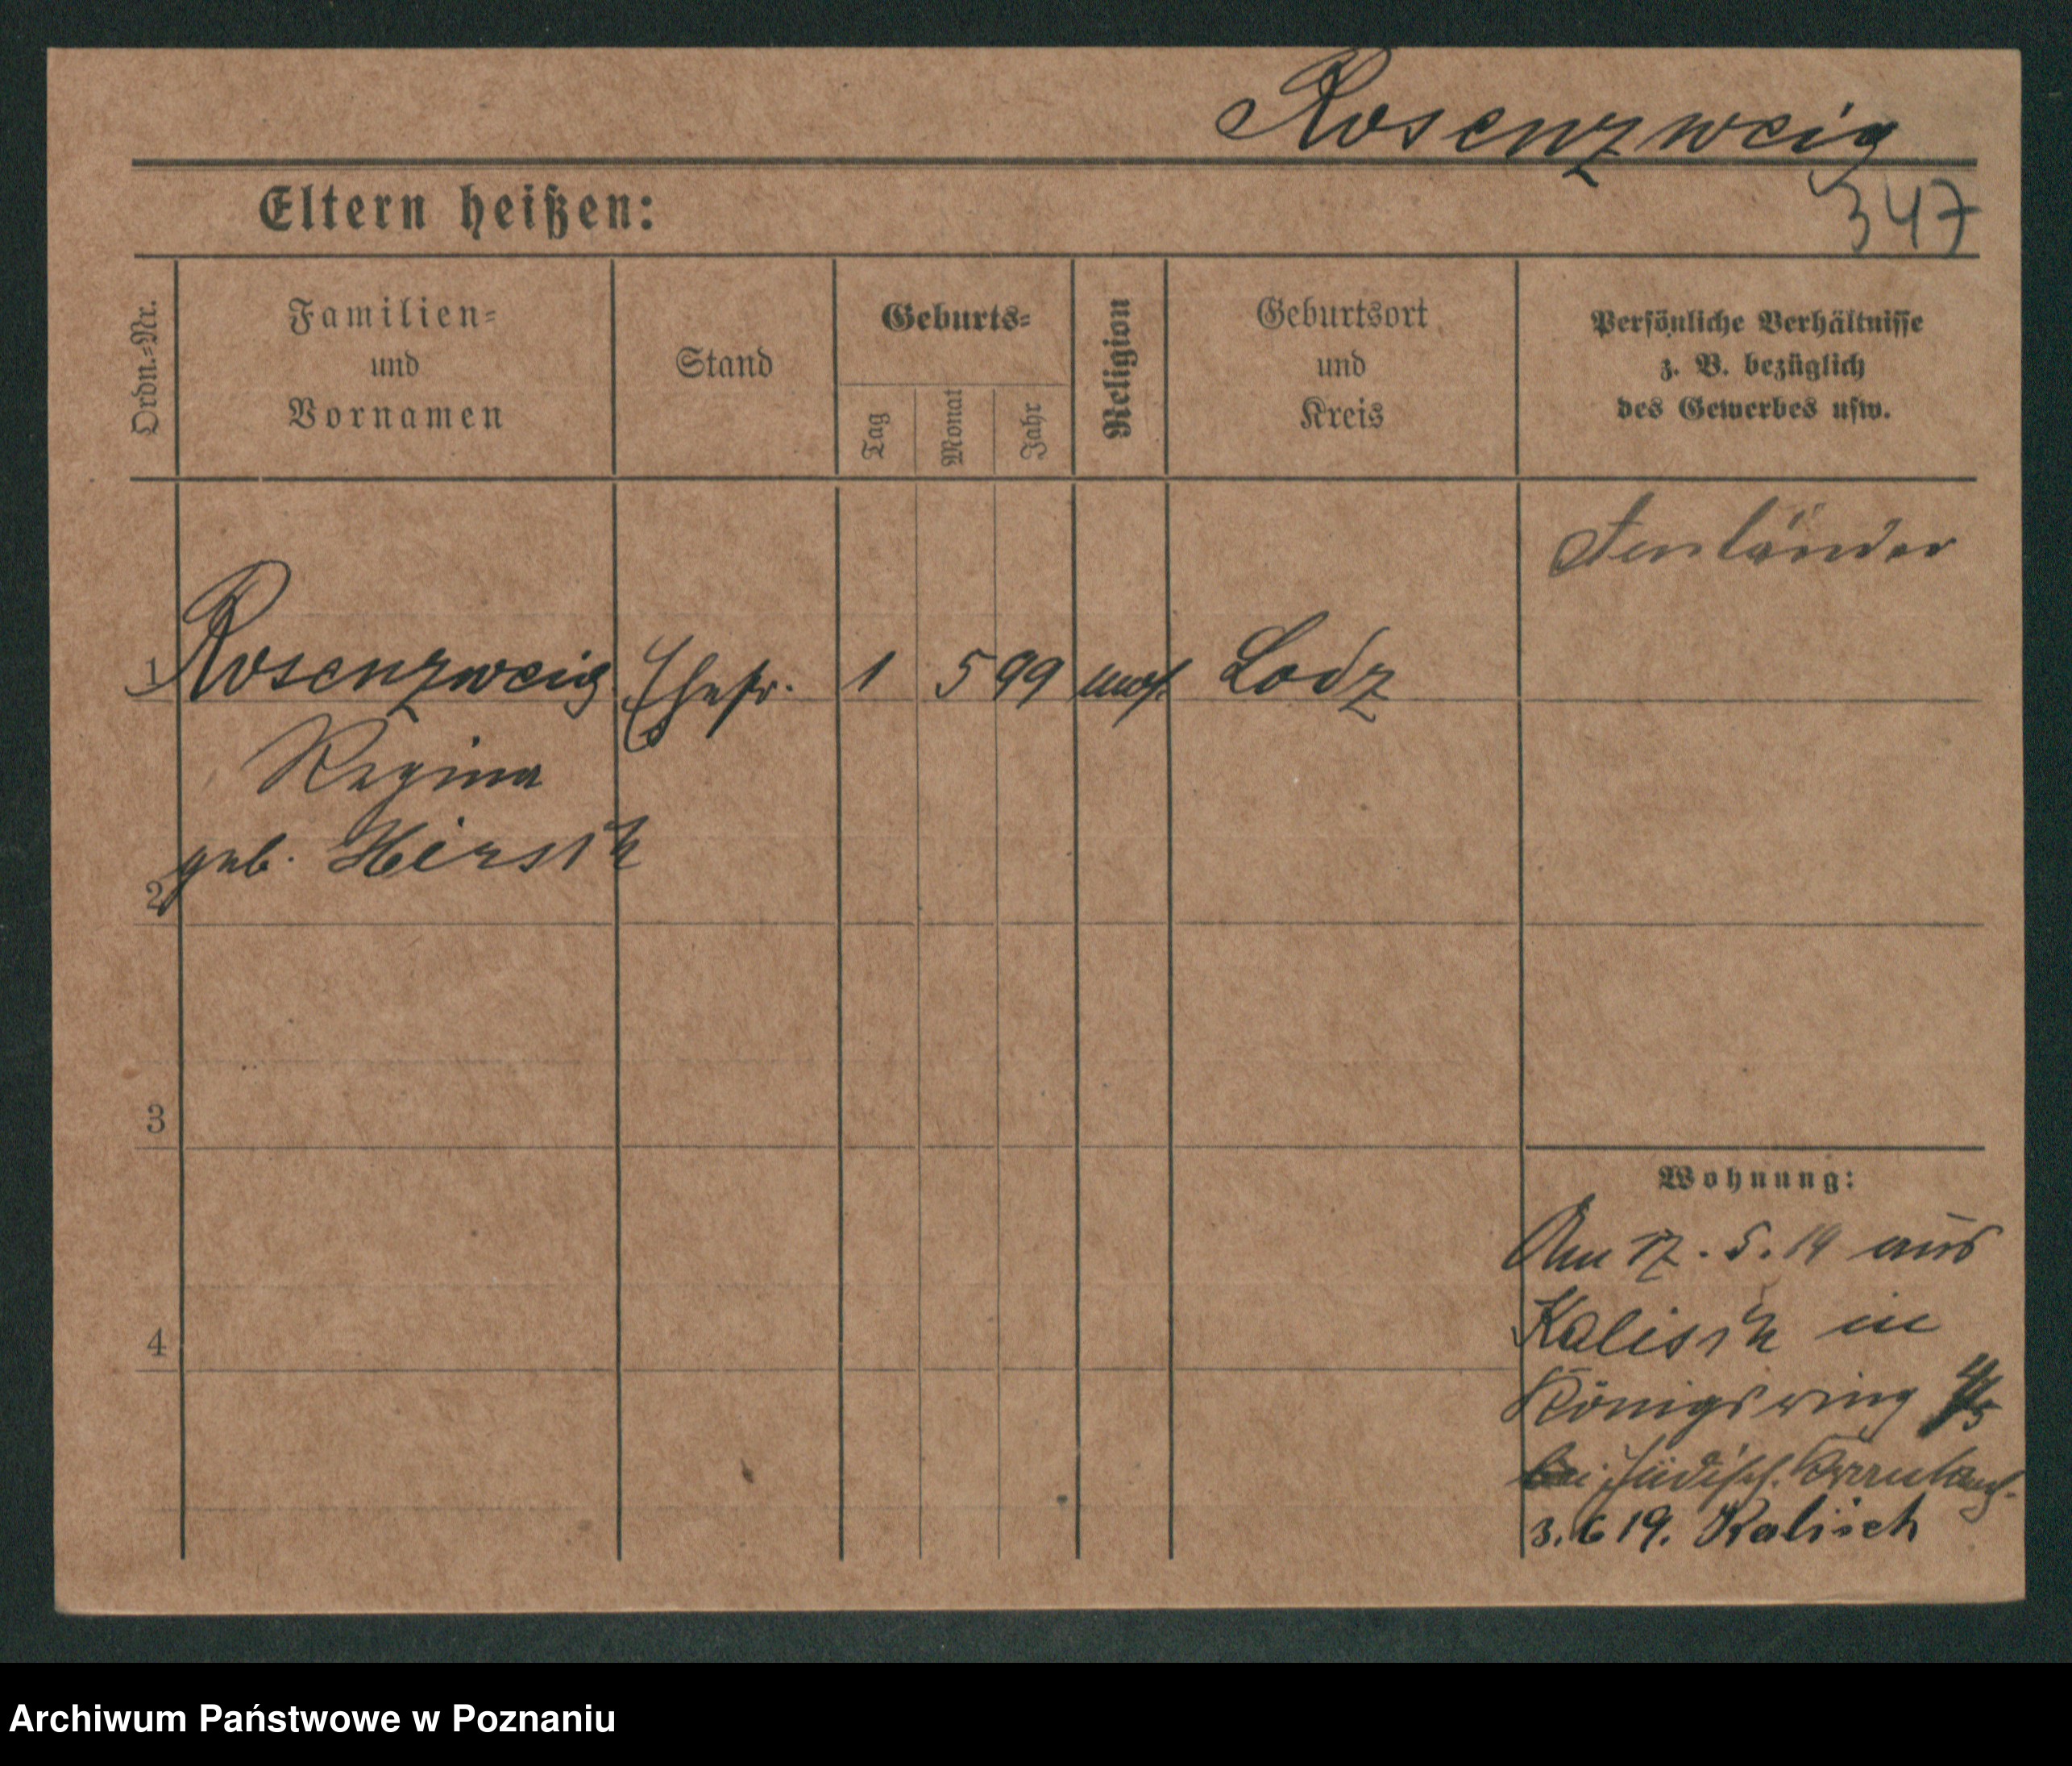 Rosenzweig
347
Eltern heißen:
Ordn.=Nr.
Familien=
und
Vornamen
Stand
Geburts=
Tag
Monat
Jahr
Religion
Geburtsort
und
Kreis
Persönliche Verhältnisse
z. B. bezüglich
des Gewerbes usw.
1 Rosenzweig Ehefr. 1 5 99 mos. Lodz
Regina
geb. Hirsch
2
3
4
Wohnung:
Am 17. 5. 19 aus
Kalisch in
Königsring 4/5
bei jüdisch. Krankenh.
3. 6 19. Kalisch
Archiwum Państwowe w Poznaniu